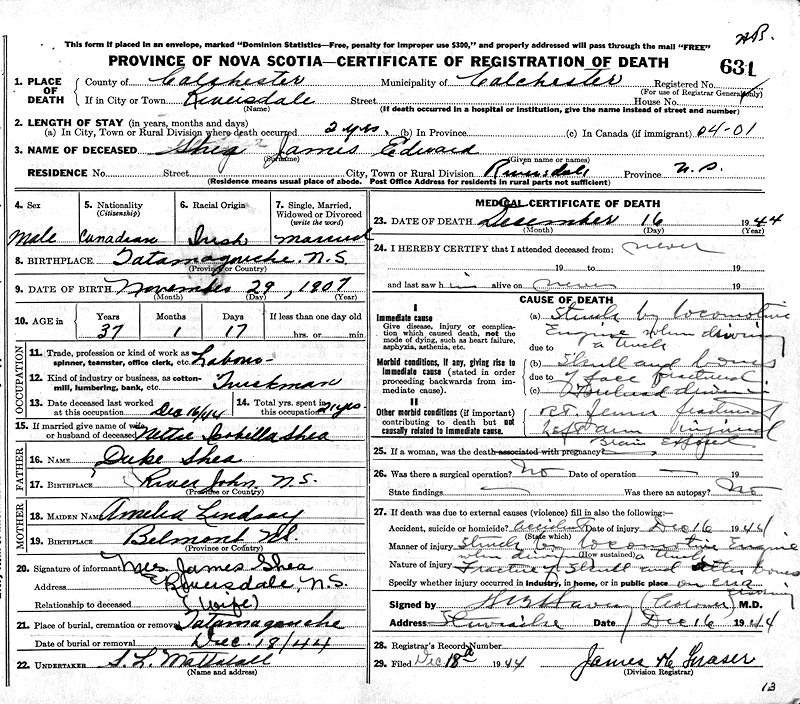 AB.
This form if placed in an envelope, marked "Dominion Statistics—Free, penalty for improper use $300," and properly addressed will pass through the mail "FREE"
PROVINCE OF NOVA SCOTIA—CERTIFICATE OF REGISTRATION OF DEATH
631
1. PLACE OF DEATH
County of Colchester Municipality of Colchester Registered No.
(For use of Registrar General only)
If in City or Town Riversdale Street House No.
(Name) (If death occurred in a hospital or institution, give the name instead of street and number)
2. LENGTH OF STAY (in years, months and days)
(a) In City, Town or Rural Division where death occurred 2 yrs. (b) In Province (c) In Canada (if immigrant) 04-01
3. NAME OF DECEASED Shea James Edward
(Surname) (Given name or names)
RESIDENCE No. Street City, Town or Rural Division Riversdale Province N.S.
(Residence means usual place of abode. Post Office Address for residents in rural parts not sufficient)
4. Sex
Male
5. Nationality
(Citizenship)
Canadian
6. Racial Origin
Irish
7. Single, Married, Widowed or Divorced
(write the word)
married
8. BIRTHPLACE Tatamagouche. N.S.
(Province or Country)
9. DATE OF BIRTH November 29, 1907
(Month) (Day) (Year)
10. AGE in
Years Months Days If less than one day old
37 1 17 hrs. or min.
OCCUPATION
11. Trade, profession or kind of work as spinner, teamster, office clerk, etc. Labour
12. Kind of industry or business, as cotton-mill, lumbering, bank, etc. Truckman
13. Date deceased last worked at this occupation Dec 16/44
14. Total yrs. spent in this occupation 21 yrs.
15. If married give name of wife or husband of deceased Nettie Shea
FATHER
16. NAME Duke Shea
17. BIRTHPLACE River John N.S.
(Province or Country)
MOTHER
18. MAIDEN NAME Amelia Lindsay
19. BIRTHPLACE Belmont N.S.
(Province or Country)
20. Signature of informant Mrs James Shea
Address Riversdale, N.S.
Relationship to deceased (wife)
21. Place of burial, cremation or removal Tatamagouche
Date of burial or removal Dec. 18/44
22. UNDERTAKER S. L. Mattatall
(Name and address)
MEDICAL CERTIFICATE OF DEATH
23. DATE OF DEATH December 16 1944
(Month) (Day) (Year)
24. I HEREBY CERTIFY that I attended deceased from: never
19 to 19
and last saw h im alive on never 19
CAUSE OF DEATH
I
Immediate cause
Give disease, injury or complication which caused death, not the mode of dying, such as heart failure, asphyxia, asthenia, etc.
Morbid conditions, if any, giving rise to immediate cause (stated in order proceeding backwards from immediate cause).
II
Other morbid conditions (if important) contributing to death but not causally related to immediate cause.
(a) Struck by locomotive
Engine when driving
due to a truck
(b) Skull and bones
due to of face fractured
(c)
Rt. femur fractured
Left arm injured
Brain Exposed
25. If a woman, was the death associated with pregnancy?
26. Was there a surgical operation? No Date of operation — 19
State findings — Was there an autopsy? No
27. If death was due to external causes (violence) fill in also the following:-
Accident, suicide or homicide? accident Date of injury Dec 16 1944
(State which)
Manner of injury Struck by locomotive Engine
when driving a truck
(How sustained)
Nature of injury Fracture of Skull and other bones
Specify whether injury occurred in industry, in home, or in public place
Signed by (Coroner) M.D.
Address Date Dec 16 1944
28. Registrar's Record Number
29. Filed Dec 18th 1944 James H Fraser
(Division Registrar)
13